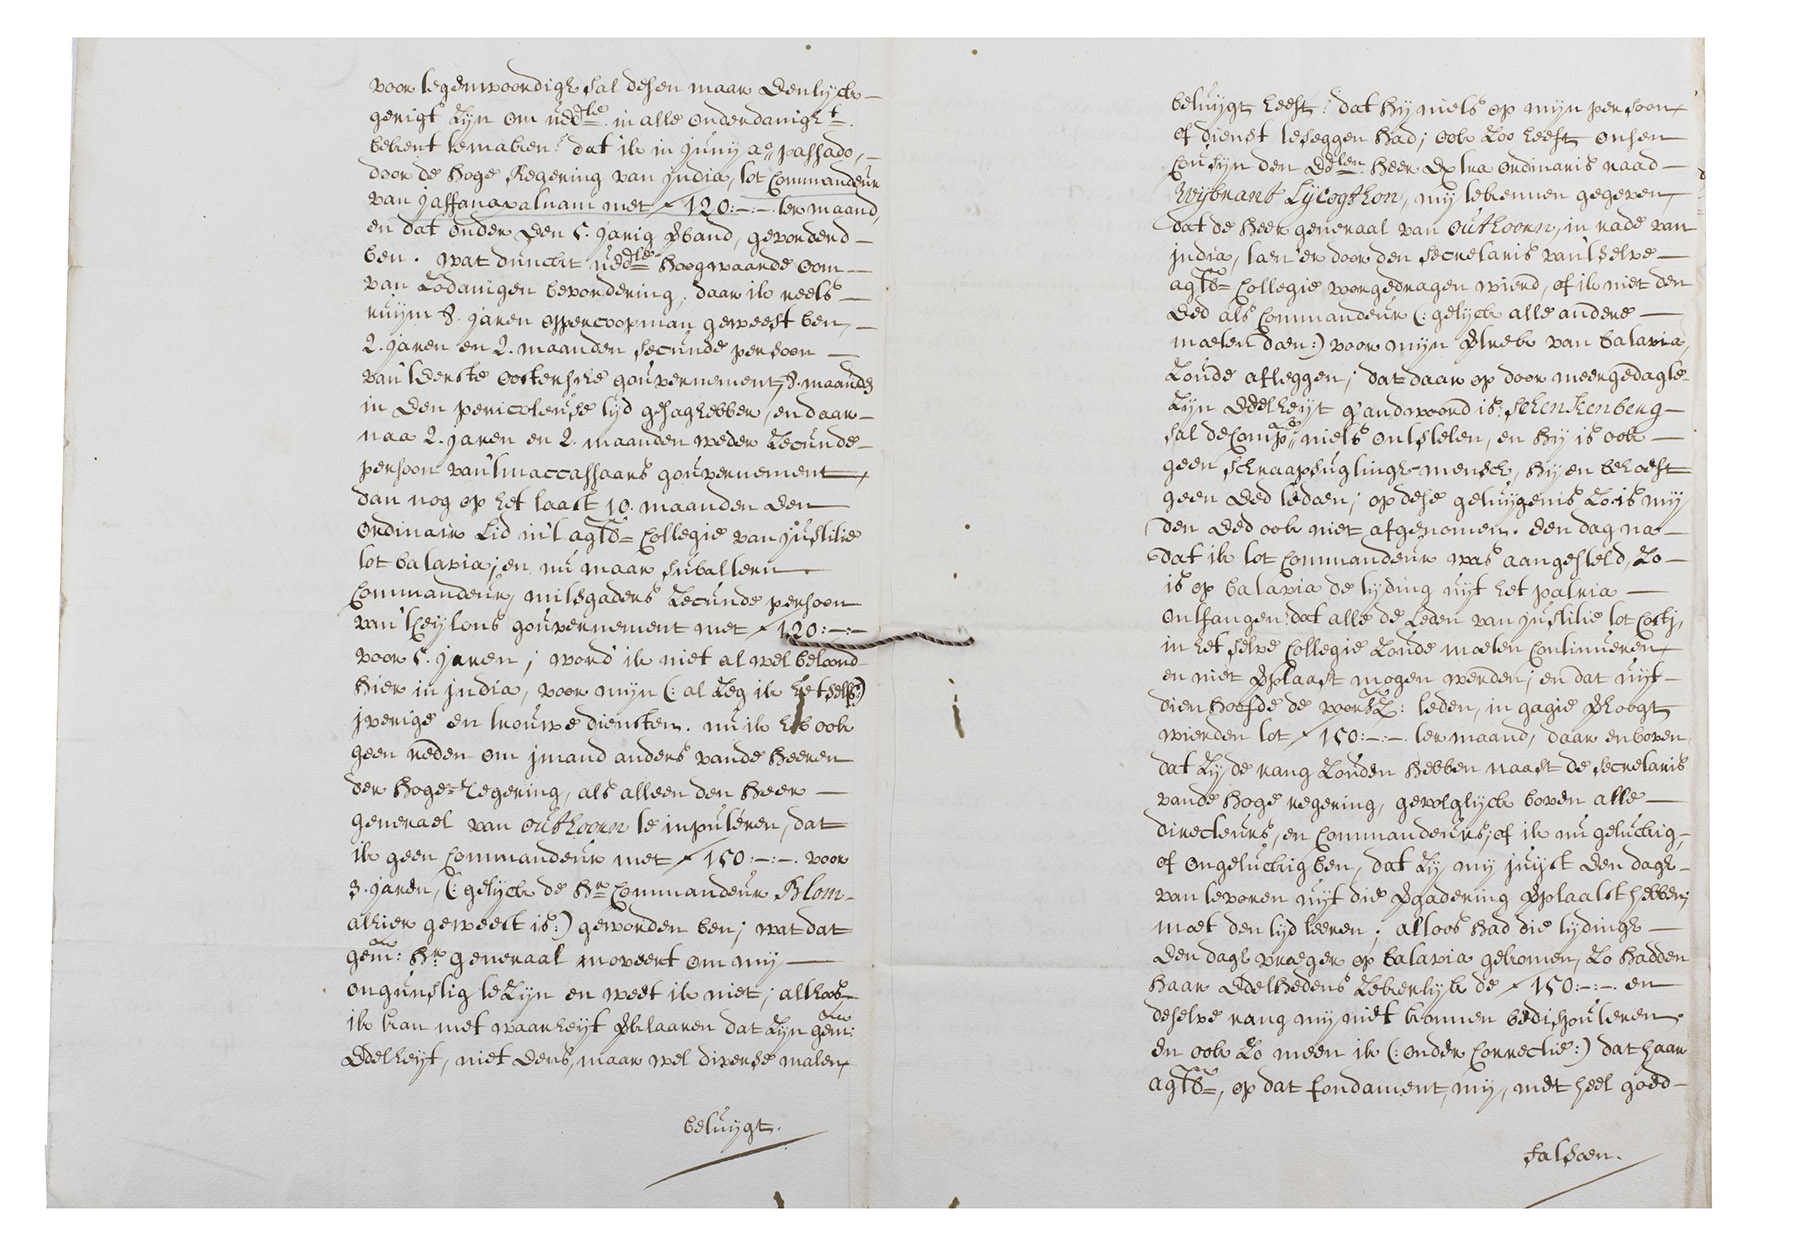 voor tegenwoordigh sal desen maar eenlyck
gerigt zyn om uEdle. in alle onderdanight.
bekent te maken: dat ik in Juny ao. passado,
door de hoge Regering van India, tot Commandeur
van Jaffanapatnam met f 120:-:- ter maand,
en dat onder een 5. jarig verband, gevorderd
ben. wat dunckt uEdle hoogwaarde oom
van sodanigen bevordering, daar ik reets
ruijm 8. jaren oppercoopman geweest ben,
2. jaren en 2. maanden secunde persoon
van 't eerste oostersche gouvernement, 8. maanden
in den pericoleuse tyd gesaghebber, en daar
naa 2. jaren en 2. maanden weder secunde
persoon van 't maccassaars gouvernement,
dan nog op het laast 10. maanden een
ordinair Lid in 't agtb= Collegie van Justitie
tot batavia; en nu maar subaltern
Commandeur, mitsgaders secunde persoon
van 't Ceylons gouvernement met f 120:-:-
voor 5. jaren; word ik niet al wel beloond
hier in India, voor mijn (: al zeg ik het self:)
jverige en trouwe diensten. nu ik heb ook
geen reden om jmand anders vande heeren
der hoge Regering, als alleen den heer
generael van Outhoorn te inputeren, dat
ik geen Commandeur met f 150:-:-. voor
3. jaren, (: gelyck de hr. Commandeur Blom
alhier geweest is:) geworden ben; wat dat
gem: hr. generaal moveert om my
ongunstig te zyn en weet ik niet; althoos
ik kan met waarheyt verklaaren dat zyn gem:
Edelheyt, niet eens, maar wel diverse malen,
betuijgt.
betuijgt heeft: dat hy niets op mijn persoon,
of dienst te seggen had; ook zoo heeft onsen
Cousyn den Edlen. heer Extra ordinaris raad
Wybrant Lycogthon, my te kennen gegeven,
dat de heer generaal van Outhoorn, in rade van
India, (aen er door den secretaris van 't selve
agtb= Collegie voorgedragen wierd, of ik niet den
Eed als Commandeur (: gelyck alle andere
moeten doen:) voor mijn vertrek van batavia,
soude afleggen; dat daar op door meergedagte
zyn Edelheyt g'andwoord is: Schenkenberg
sal de Compe. niets ontstelen, en hy is ook
geen schraapsuglingh mensch, hy en behoeft
geen Eed te doen; op dese getuijgenis zo is my
den Eed ook niet afgenomen. den dag na
dat ik tot Commandeur was aangesteld, zo
is op batavia de tyding uyt het patria
ontfangen, dat alle de Leden van Justitie tot Costy,
in het selve Collegie soude moeten Continueren,
en niet verplaast mogen werden; en dat uyt
dien hoofde de voorsz: leden, in gagie verhoogt
wierden tot f 150:-:-. ter maand, daar en boven
dat zy de rang souden hebben naast de secretaris
vande hoge regering, gevolglyck boven alle
directeurs, en Commandeurs; of ik nu geluckig,
of ongeluckig ben, dat zy my juijst den dagh
van te voren uyt die vergadering verplaatst hebben;
moet den tyd leeren; altoos had die tydingh
een dagh vroeger op batavia gekomen, zo hadden
haar Edelhedens sekerlyk de f 150:-:-. en
deselve rang my niet konnen bedisputeren.
en ook zo meen ik (: onder Correctie:) dat haar
agtb=, op dat fondament, my, met heel goed
fatsoen.